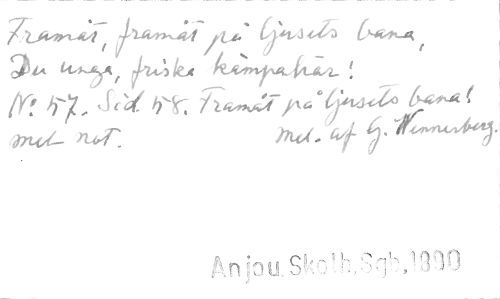 Framåt, framåt på ljusets bana,
Du unga, friska kämpahär!
No 57. Sid. 58. Framåt på ljusets bana!
met not. Mel. af G. Wennerberg.
Anjou, Skolh. Sgb, 1890